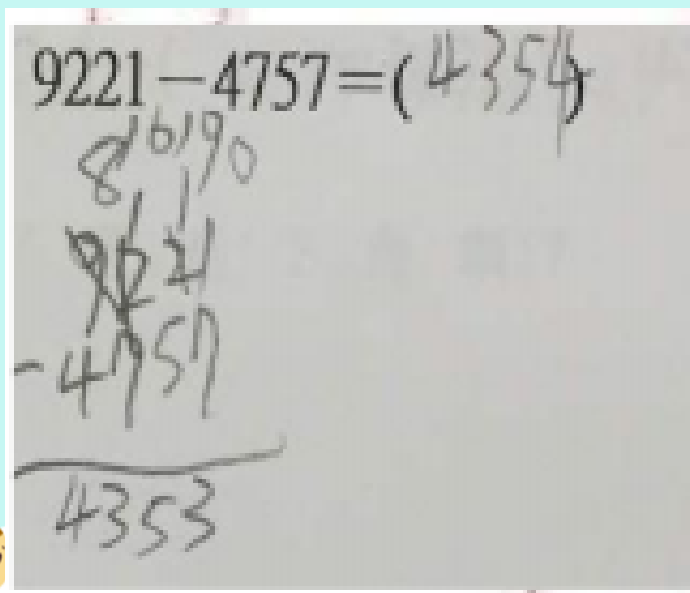 9221-4757=(4354)
8 16 19 0
1 1
9221
-4757
4353